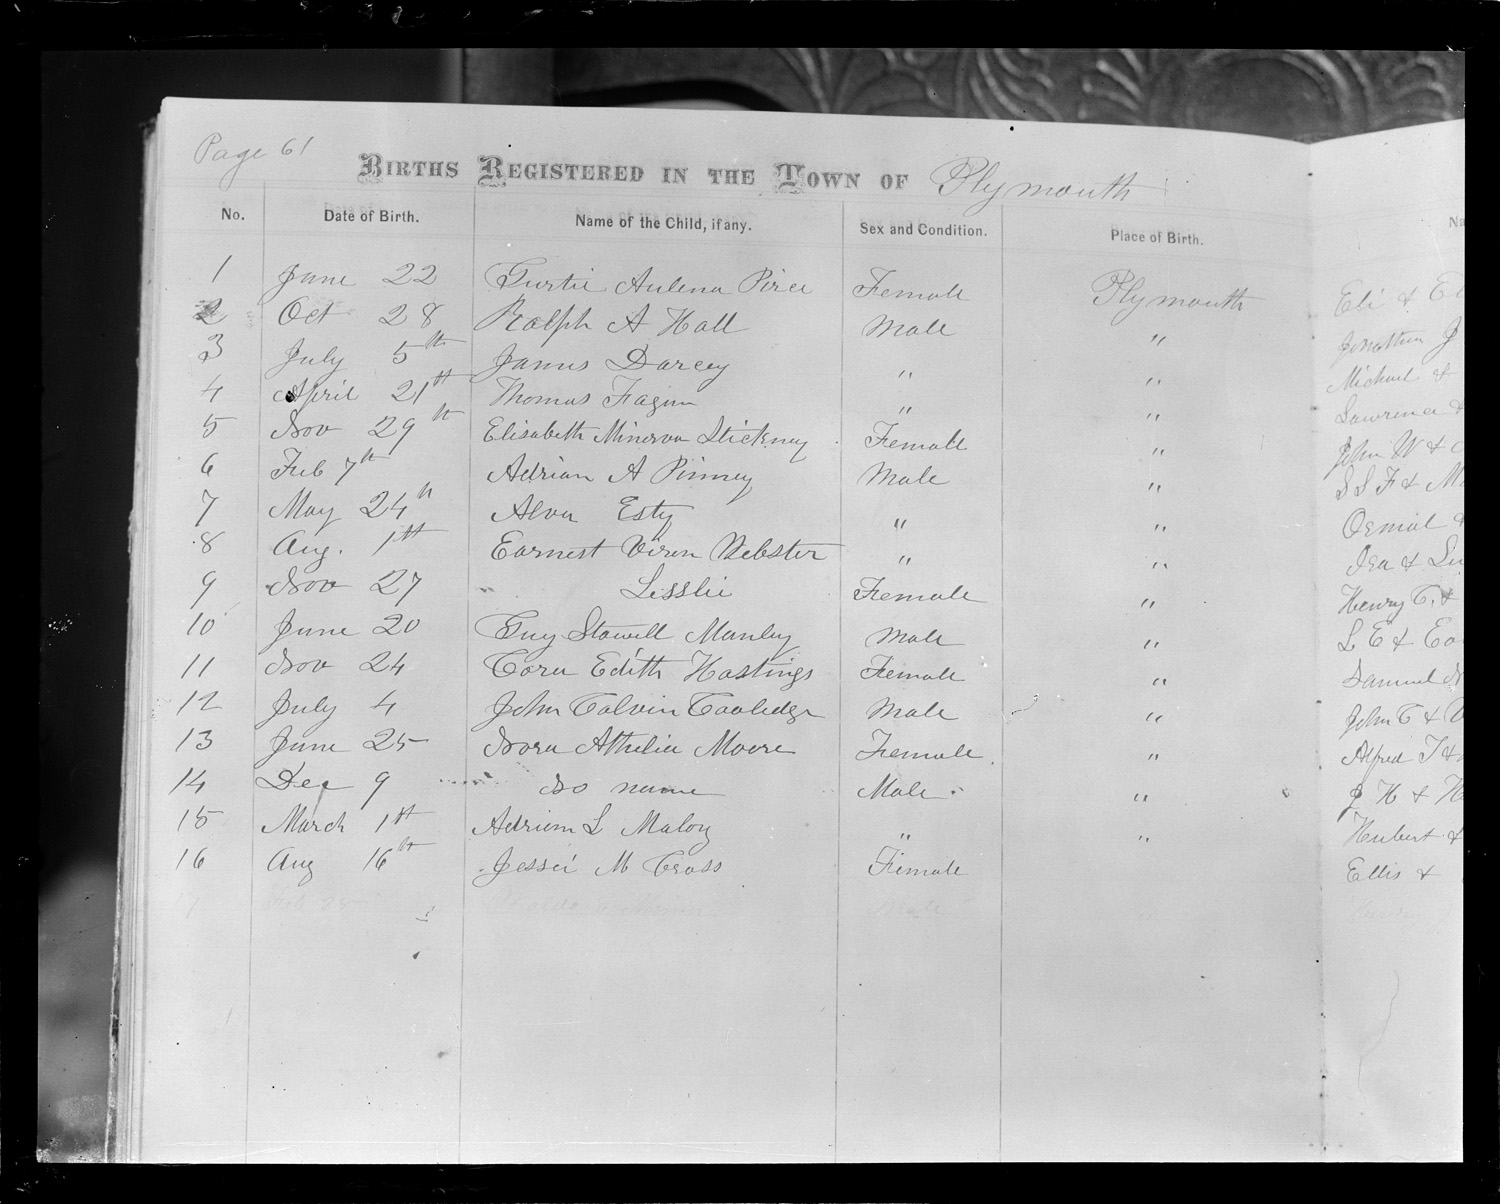 Page 61
Births Registered in the Town of Plymouth
No. Date of Birth. Name of the Child, if any. Sex and Condition. Place of Birth. Na
1 June 22 Gurtie Aulena Pirce Female Plymouth Eli & El
2 Oct 28 Ralph A Hall Male " Jonathan J
3 July 5th James Darcey " " Michael &
4 April 21st Thomas Fagan " " Lawrence &
5 Nov 29th Elisabeth Minerva Stickney Female " John W &
6 Feb 7th Adrian A Pinney Male " S S F & M
7 May 24th Alva Esty " " Ormial &
8 Aug. 1st Earnest Viron Webster " " Ira & Lu
9 Nov 27 " Lesslie Female " Henry C. &
10 June 20 Guy Stowell Manley Male " L E & Eo
11 Nov 24 Cora Edith Hastings Female " Samuel N
12 July 4 John Calvin Coolidge Male " John C & V
13 June 25 Nora Athelia Moore Female " Alfred T &
14 Dec 9 No name Male " J H & H
15 March 1st Adrian L Maloy " " Hubert &
16 Aug 16th Jessie M Cross Female Ellis &
17 Male